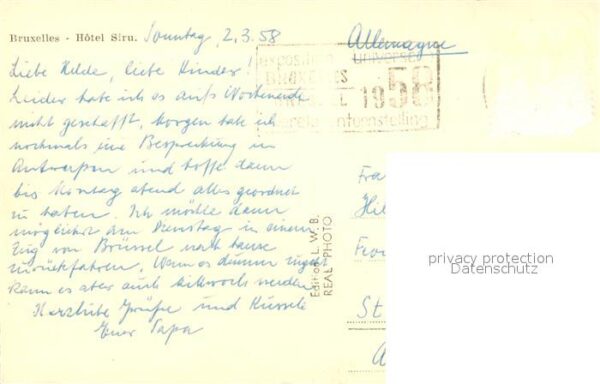 Bruxelles - Hôtel Siru. Sonntag, 2.3.58
Allemagne
exposition universelle
BRUXELLES
1958
wereldtentoonstelling
Liebe Hilde, liebe Kinder!
Leider habe ich es aufs Wochenende
nicht geschafft. Morgen habe ich
nochmals eine Besprechung in
Antwerpen und hoffe dann
bis Montag abend alles geordnet
zu haben. Ich möchte dann
möglichst am Dienstag in einem
Zug von Brüssel nach hause
zurückfahren. Wenn es dumm zugeht
kann es aber auch Mittwoch werden
Herzliche Grüße und Küssele
Euer Papa
Edition L.W.B.
REAL PHOTO
Fra
Hil
Fra
St
privacy protection
Datenschutz